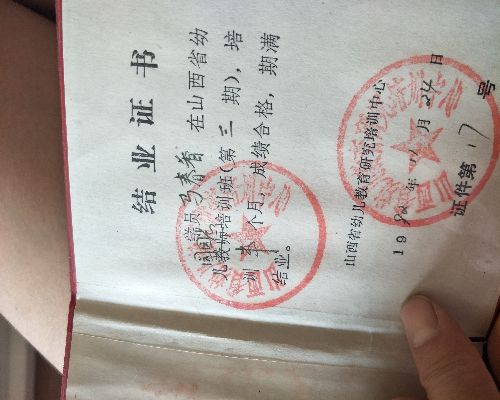 结业证书
学员马春香 在山西省幼
儿教师培训班(第三期),培
训半个月,成绩合格,期满
结业。
山西省幼儿教育研究培训中心
19 年 月 24 日
证件第 17 号